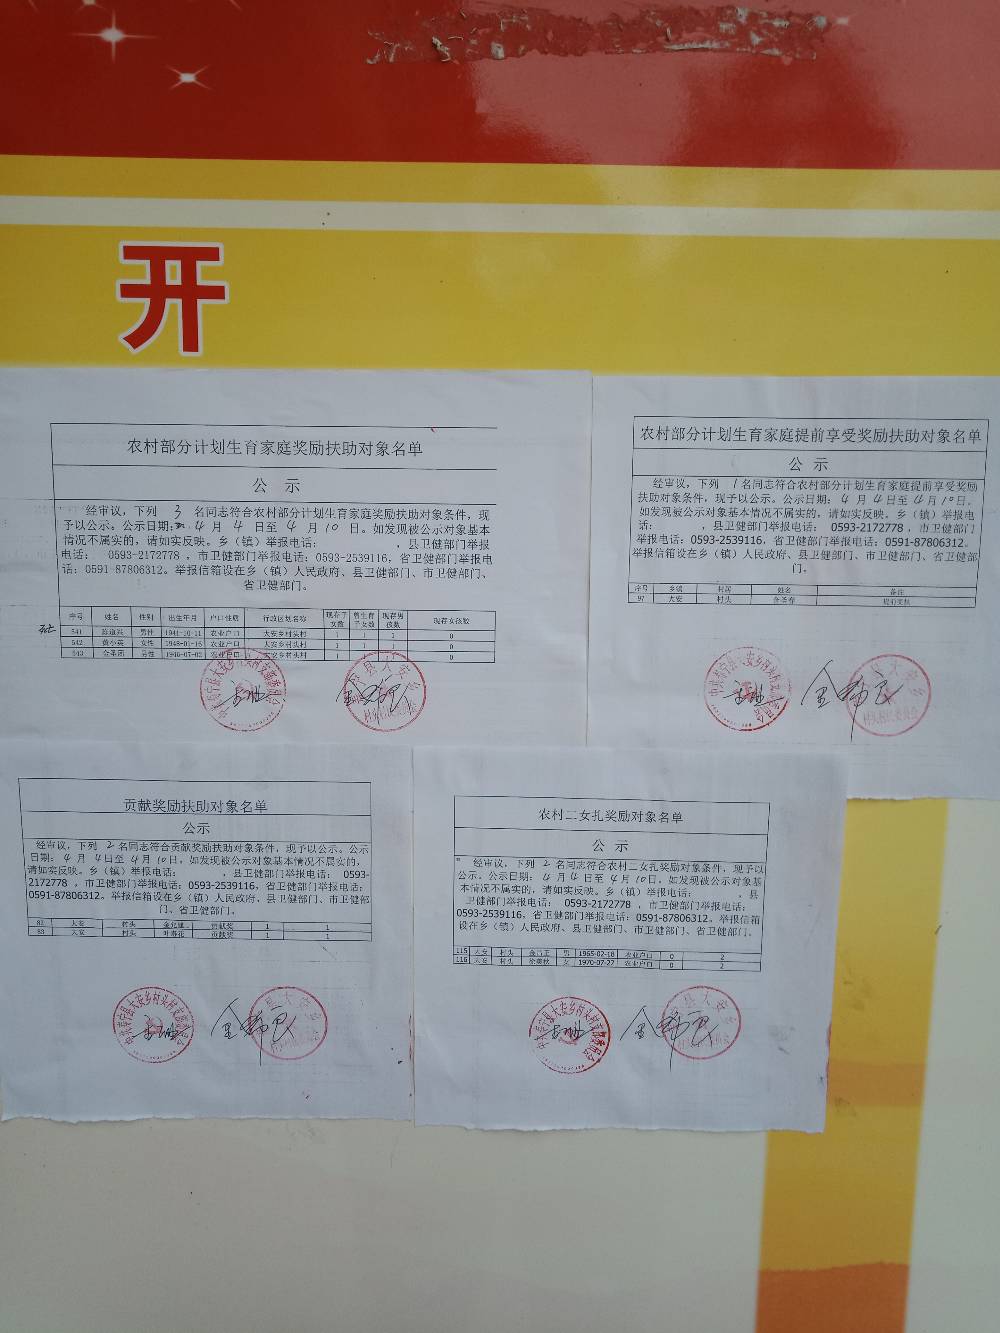 开
农村部分计划生育家庭奖励扶助对象名单
公 示
经审议，下列 3 名同志符合农村部分计划生育家庭奖励扶助对象条件，现
予以公示。公示日期：4 月 4 日至 4 月 10 日。如发现被公示对象基本
情况不属实的，请如实反映。乡（镇）举报电话： ，县卫健部门举报
电话： 0593-2172778 ，市卫健部门举报电话：0593-2539116，省卫健部门举报电
话：0591-87806312。举报信箱设在乡（镇）人民政府、县卫健部门、市卫健部门、
省卫健部门。
序号 姓名 性别 出生年月 户口性质 行政区划名称 现存子女数 曾生育子女数 现存男孩数 现存女孩数
541 男性 1941-10-11 农业户口 大安乡村头村 1 1 1 0
542 女性 1948-01-16 农业户口 大安乡村头村 1 1 1 0
543 男性 农业户口 大安乡村头村 1 1 1 0
农村部分计划生育家庭提前享受奖励扶助对象名单
公 示
经审议，下列 1 名同志符合农村部分计划生育家庭提前享受奖励
扶助对象条件，现予以公示。公示日期：4 月 4 日至 4 月 10 日。
如发现被公示对象基本情况不属实的，请如实反映。乡（镇）举报电
话： ，县卫健部门举报电话： 0593-2172778 ，市卫健部门
举报电话：0593-2539116，省卫健部门举报电话：0591-87806312。
举报信箱设在乡（镇）人民政府、县卫健部门、市卫健部门、省卫健部
门。
序号 乡镇 村居 姓名 备注
97 大安 村头 提前奖扶
中共寿宁县大安乡村头村支部委员会
县大安乡
村头村民委员会
贡献奖励扶助对象名单
公示
经审议，下列 2 名同志符合贡献奖励扶助对象条件，现予以公示。公示
日期：4 月 4 日至 4 月 10 日。如发现被公示对象基本情况不属实的，
请如实反映。乡（镇）举报电话： ，县卫健部门举报电话： 0593-
2172778 ，市卫健部门举报电话：0593-2539116，省卫健部门举报电话：
0591-87806312。举报信箱设在乡（镇）人民政府、县卫健部门、市卫健部
门、省卫健部门。
82 大安 村头 贡献奖 1 1
83 大安 村头 贡献奖 1 1
农村二女扎奖励对象名单
公 示
经审议，下列 2 名同志符合农村二女扎奖励对象条件，现予以
公示。公示日期：4 月 4 日至 4 月 10 日。如发现被公示对象基
本情况不属实的，请如实反映。乡（镇）举报电话： ，县
卫健部门举报电话： 0593-2172778 ，市卫健部门举报电话：
0593-2539116，省卫健部门举报电话：0591-87806312。举报信箱
设在乡（镇）人民政府、县卫健部门、市卫健部门、省卫健部门。
115 大安 村头 男 1965-02-18 农业户口 0 2
116 大安 村头 女 1970-07-27 农业户口 0 2